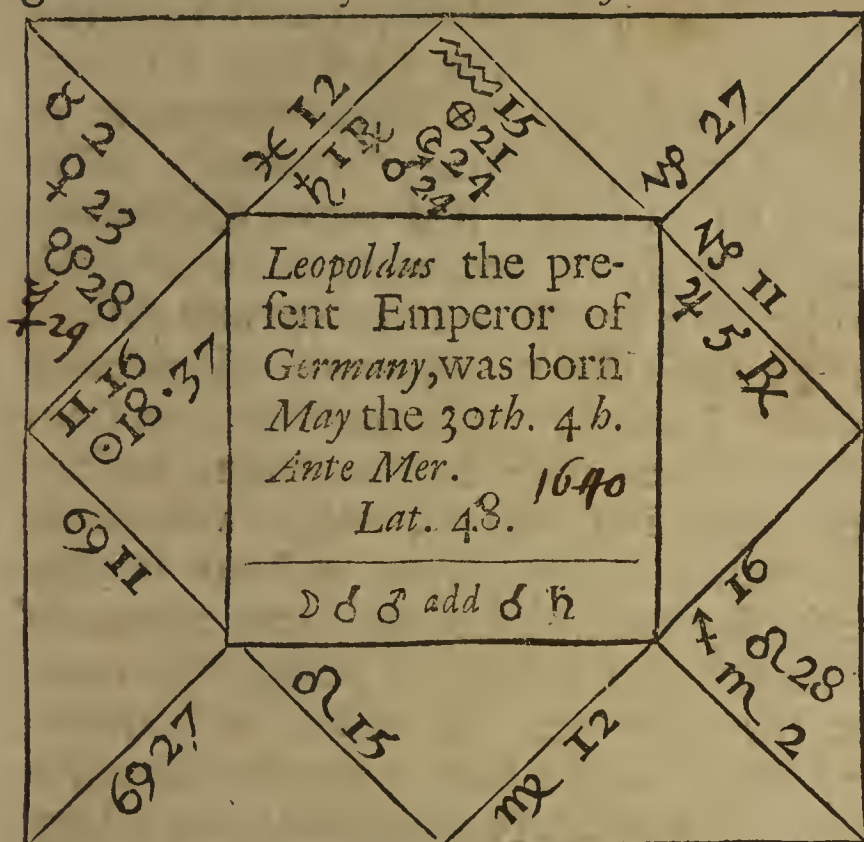 ♓ 12
♄ 1
♒ 15
⊗ 21
☾ 24
♂ 24
♑ 27
♉ 2
♀ 23
☋ 28
29
♊ 16
☉ 18·37
♑ 11
♃ 5 ℞
Leopoldus the pre-
ſent Emperor of
Germany, was born
May the 30th. 4 h.
Ante Mer. 1640
Lat. 48.
☽ ☌ ♂ add ☌ ♄
♋ 11
♋ 27
♌ 15
♍ 12
♐ 16
☊ 28
♏ 2